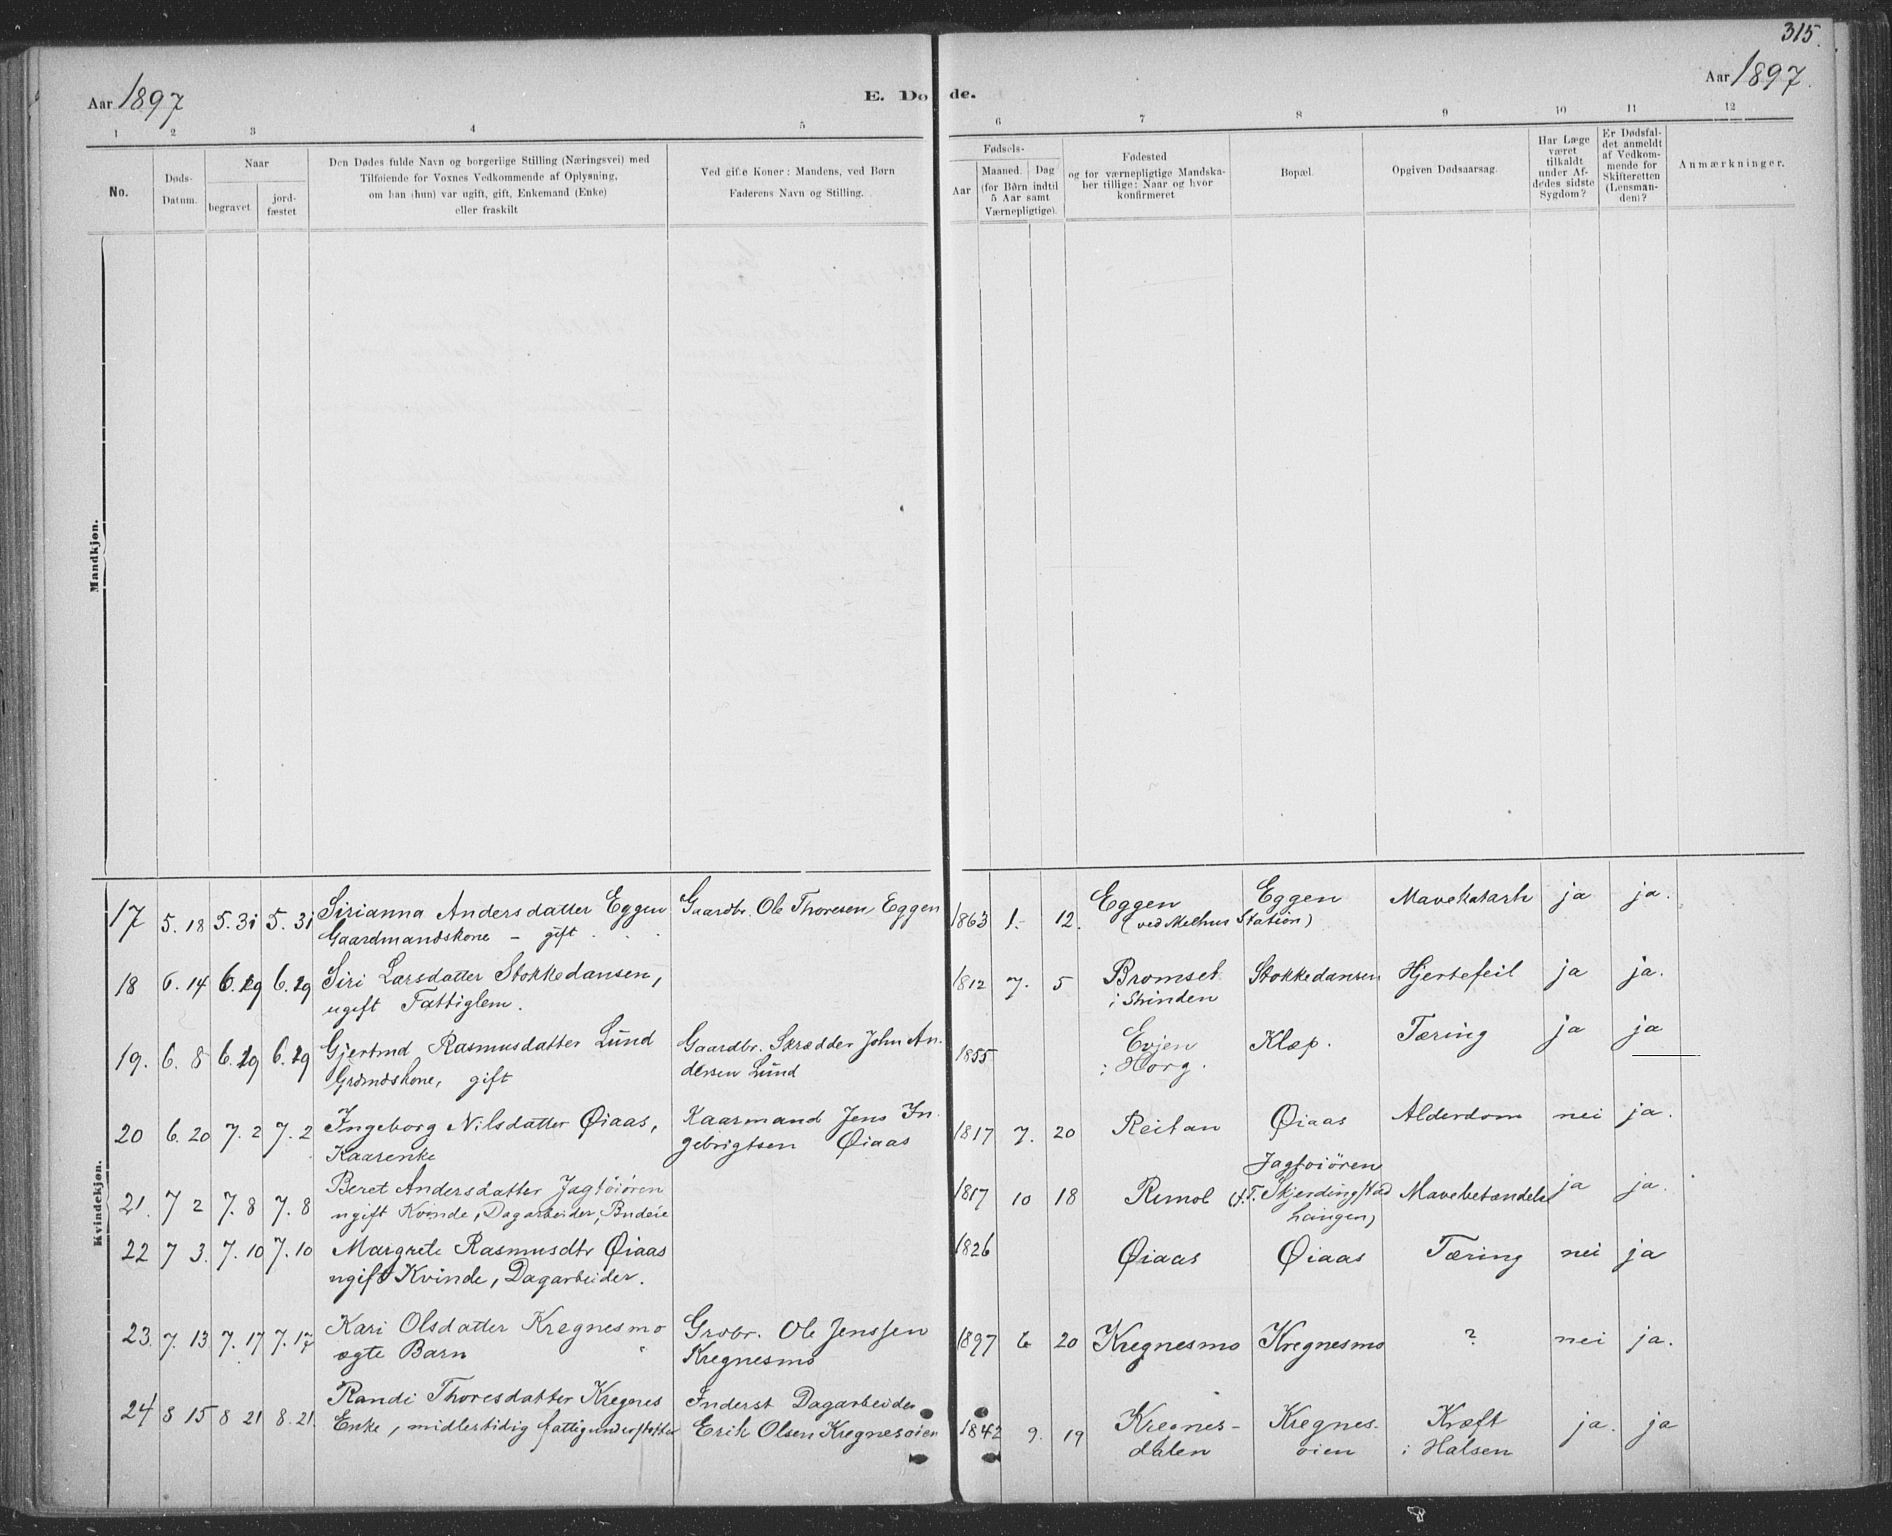 315.
Aar 1897
E. Dø de.
Aar 1897.
1 2 3 4 5 6 7 8 9 10 11 12
No.
Døds-
Datum.
Naar
begravet
jord-
fæstet
Den Dødes fulde Navn og borgerlige Stilling (Næringsvei) med
Tilføiende for Voxnes Vedkommende af Oplysning,
om han (hun) var ugift, gift, Enkemand (Enke)
eller fraskilt
Ved gifte Koner: Mandens, ved Børn
Faderens Navn og Stilling.
Fødsels-
Aar
Maaned. Dag
(for Børn indtil
5 Aar samt
Værnepligtige).
Fødested
og for værnepligtige Mandska-
ber tillige: Naar og hvor
konfirmeret
Bopæl.
Opgiven Dødsaarsag.
Har Læge
været
tilkaldt
under Af-
dødes sidste
Sygdom?
Er Dødsfal-
det anmeldt
af Vedkom-
mende for
Skifteretten
(Lensman-
den)?
Anmærkninger.
Mandkjøn.
Kvindekjøn.
17 5. 18 5. 31 5. 31 Sirianna Andersdatter Eggen Gaardbr. Ole Thoresen Eggen 1863 1. 12. Eggen Eggen Mavekatarh ja ja.
Gaardmandskone – gift. (ved Melhus Station)
18 6. 14 6. 19 6. 19 Siri Larsdatter Stokkedansen, 1812 7. 5 Bromset Stokkedansen Hjertefeil ja ja.
ugift Fattiglem. i Strinden
19. 6. 8 6. 19 6. 19 Gjertrud Rasmusdatter Lund Gaardbr. Skrædder John An- 1855 Evjen Klæp. Tæring ja ja
Grdmdskone, gift dersen Lund i Horg.
20 6. 20 7. 2 7. 2 Ingeborg Nilsdatter Øiaas, Kaarmand Jens In- 1817 7. 20 Reitan Øiaas Alderdom nei ja.
Kaarenke gebrigtsen Øiaas
21. 7 2 7. 8 7. 8 Beret Andersdatter Jagtøiøren 1817 10 18 Rimol Jagtøiøren Mavebetændelse ja ja.
ugift Kvinde, Dagarbeider, Budeie
22 7 3. 7. 10 7. 10 Margrete Rasmusdtr Øiaas 1826 Øiaas Øiaas Tæring nei ja
ugift Kvinde, Dagarbeider.
23. 7. 13 7. 17 7. 17 Kari Olsdatter Kregnesmo Grdbr. Ole Jenssen 1897 6 20 Kregnesmo Kregnesmo ? nei ja.
ægte Barn Kregnesmo
24 8 15 8 21 8. 21. Randi Thoresdatter Kregnes Inderst Dagarbeider 1842 9. 19 Kregnes- Kregnes- Kræft ja. ja
Enke, midlertidig fattigunderstøttet Erik Olsen Kregnesøien dalen øien i Halsen